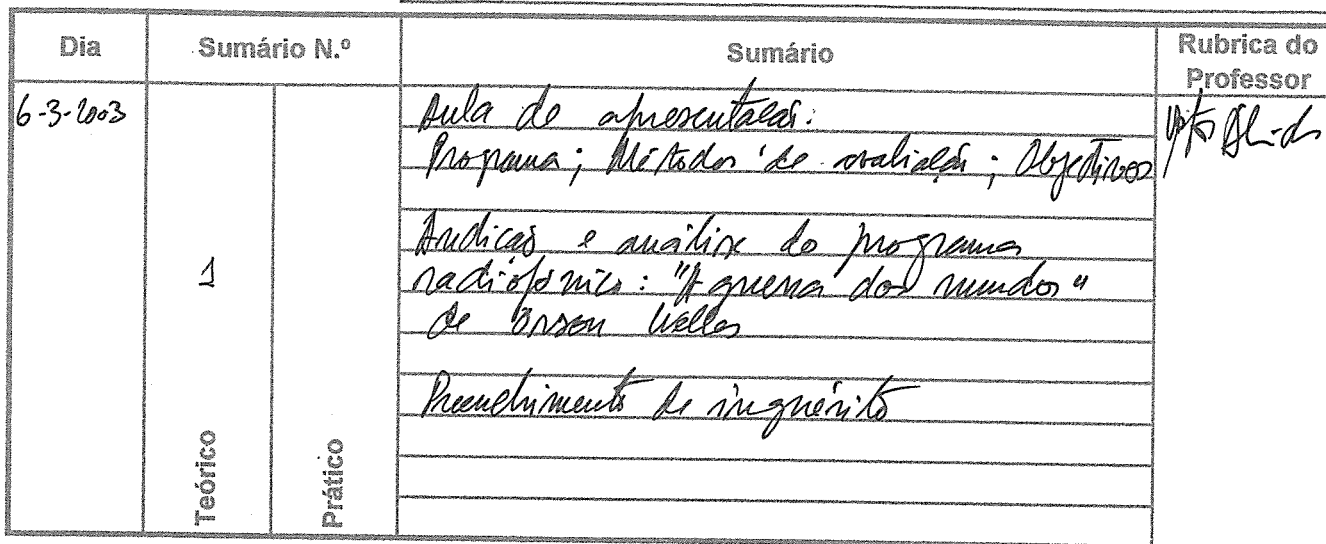 Dia Sumário N.º Sumário Rubrica do Professor
6-3-2003
Aula de apresentação:
Programa; Métodos de avaliação; Objectivos
Audição e análise do programa
1 radiofónico: "A guerra dos mundos"
de Orson Welles
Preenchimento de inquérito
Teórico Prático